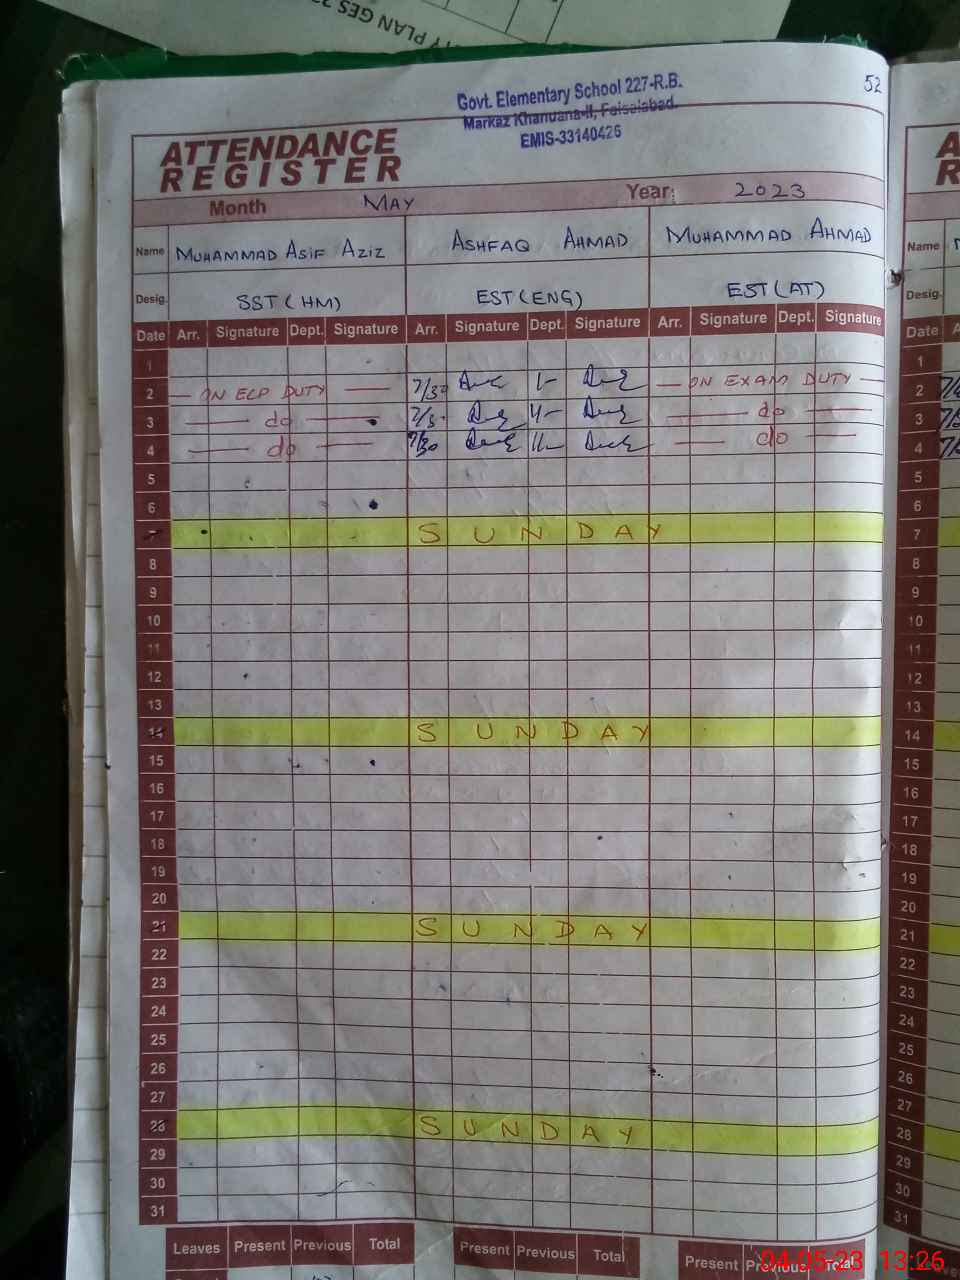 TY PLAN GES 22
52
Govt. Elementary School 227-R.B.
Markaz Khanuana-II, Faisalabad.
EMIS-33140426
ATTENDANCE
REGISTER
Month MAY Year: 2023
Name MUHAMMAD ASIF AZIZ ASHFAQ AHMAD MUHAMMAD AHMAD Name
Desig. SST (HM) EST (ENG) EST (AT) Desig.
Date Arr. Signature Dept. Signature Arr. Signature Dept. Signature Arr. Signature Dept. Signature Date
1 1
2 — ON ECP DUTY — 7/30 — ON EXAM DUTY — 2
3 — do — — do — 3
4 — do — 7/30 — do — 4
5 5
6 6
7 SUNDAY 7
8 8
9 9
10 10
11 11
12 12
13 13
14 SUNDAY 14
15 15
16 16
17 17
18 18
19 19
20 20
21 SUNDAY 21
22 22
23 23
24 24
25 25
26 26
27 27
28 SUNDAY 28
29 29
30 30
31 31
Leaves Present Previous Total Present Previous Total Present Previous Total
04-05-23 13:26